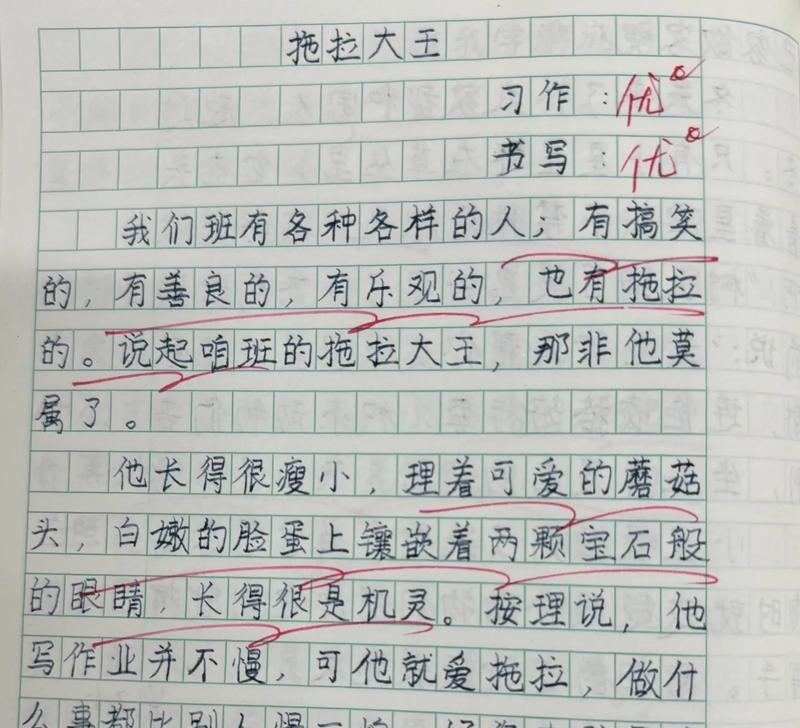 拖拉大王
习作：优
书写：优
我们班有各种各样的人；有搞笑
的，有善良的，有乐观的，也有拖拉
的。说起咱班的拖拉大王，那非他莫
属了。
他长得很瘦小，理着可爱的蘑菇
头，白嫩的脸蛋上镶嵌着两颗宝石般
的眼睛，长得很是机灵。按理说，他
写作业并不慢，可他就爱拖拉，做什
么事都比别人慢一拍